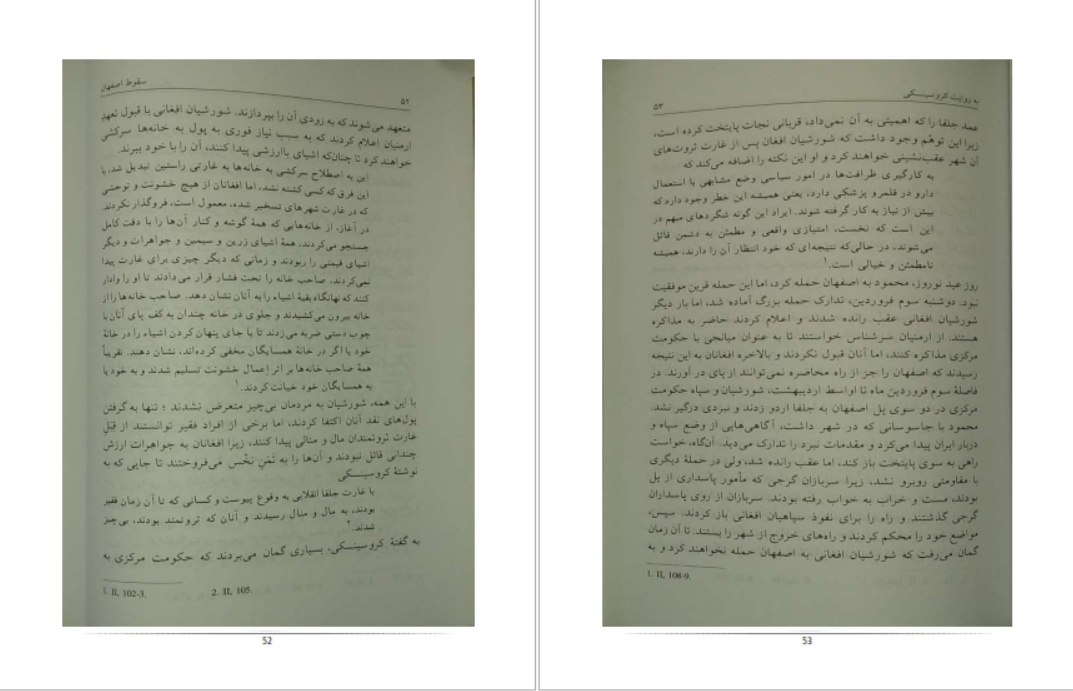 سقوط اصفهان
۵۲
متعهد می‌شوند که به زودی آن را بپردازند. شورشیان افغانی با قبول تعهد
ارمنیان اعلام کردند که به سبب نیاز فوری به پول به خانه‌ها سرکشی
خواهند کرد تا چنان‌که اشیای باارزشی پیدا کنند، آن را با خود ببرند.
این به اصطلاح سرکشی به خانه‌ها به غارتی راستین تبدیل شد، با
این فرق که کسی کشته نشد، اما افغانان از هیچ خشونت و توحشی
که در غارت شهرهای تسخیر شده، معمول است، فروگذار نکردند.
در آغاز، از خانه‌هایی که همهٔ گوشه و کنار آن‌ها را با دقت کامل
جستجو می‌کردند، همهٔ اشیای زرین و سیمین و جواهرات و دیگر
اشیای قیمتی را ربودند و زمانی که دیگر چیزی برای غارت پیدا
نمی‌کردند. صاحب خانه را تحت فشار قرار می‌دادند تا او را وادار
کنند که نهانگاه بقیهٔ اشیاء را به آنان نشان دهد. صاحب خانه‌ها را از
خانه بیرون می‌کشیدند و جلوی در خانه چندان به کف پای آنان با
چوب دستی ضربه می‌زدند تا یا جای پنهان کردن اشیاء را در خانهٔ
خود یا اگر در خانهٔ همسایگان مخفی کرده‌اند، نشان دهند. تقریباً
همهٔ صاحب خانه‌ها بر اثر اِعمال خشونت تسلیم شدند و به خود یا
به همسایگان خود خیانت کردند.۱
با این همه، شورشیان به مردمان بی‌چیز متعرض نشدند ؛ تنها به گرفتن
پول‌های نقد آنان اکتفا کردند، اما برخی از افراد فقیر توانستند از قِبَلِ
غارت ثروتمندان مال و منالی پیدا کنند، زیرا افغانان به جواهرات ارزش
چندانی قائل نبودند و آن‌ها را به ثَمَنِ بَخْس می‌فروختند تا جایی که به
نوشتهٔ کروسینسکی
با غارت جلفا انقلابی به وقوع پیوست و کسانی که تا آن زمان فقیر
بودند، به مال و منال رسیدند و آنان که ثروتمند بودند، بی‌چیز
شدند.۲
به گفتهٔ کروسینسکی، بسیاری گمان می‌بردند که حکومت مرکزی به
1. II, 102-3. 2. II, 105.
52
به روایت کروسینسکی
۵۳
عمد جلفا را که اهمیتی به آن نمی‌داد، قربانی نجات پایتخت کرده است،
زیرا این توهّم وجود داشت که شورشیان افغان پس از غارت ثروت‌های
آن شهر عقب‌نشینی خواهند کرد و او این نکته را اضافه می‌کند که
به کارگیری ظرافت‌ها در امور سیاسی وضع مشابهی با استعمال
دارو در قلمرو پزشکی دارد، یعنی همیشه این خطر وجود دارد که
بیش از نیاز به کار گرفته شوند. ایراد این گونه شگردهای مبهم در
این است که نخست، امتیازی واقعی و مطمئن به دشمن قائل
می‌شوند، در حالی‌که نتیجه‌ای که خود انتظار آن را دارند، همیشه
نامطمئن و خیالی است.۱
روز عید نوروز، محمود به اصفهان حمله کرد، اما این حمله قرین موفقیت
نبود. دوشنبه سوم فروردین، تدارک حمله بزرگ آماده شد، اما بار دیگر
شورشیان افغانی عقب رانده شدند و اعلام کردند حاضر به مذاکره
هستند. از ارمنیان سرشناس خواستند تا به عنوان میانجی با حکومت
مرکزی مذاکره کنند، اما آنان قبول نکردند و بالاخره افغانان به این نتیجه
رسیدند که اصفهان را جز از راه محاصره نمی‌توانند از پای در آورند. در
فاصلهٔ سوم فروردین ماه تا اواسط اردیبهشت، شورشیان و سپاه حکومت
مرکزی در دو سوی پل اصفهان به جلفا اردو زدند و نبردی درگیر نشد.
محمود با جاسوسانی که در شهر داشت، آگاهی‌هایی از وضع سپاه و
دربار ایران پیدا می‌کرد و مقدمات نبرد را تدارک می‌دید. آن‌گاه، خواست
راهی به سوی پایتخت باز کند، اما عقب رانده شد، ولی در حملهٔ دیگری
با مقاومتی روبرو نشد، زیرا سربازان گرجی که مأمور پاسداری از پل
بودند، مست و خراب به خواب رفته بودند. سربازان از روی پاسداران
گرجی گذشتند و راه را برای نفوذ سپاهیان افغانی باز کردند. سپس،
مواضع خود را محکم کردند و راه‌های خروج از شهر را بستند. تا آن زمان
گمان می‌رفت که شورشیان افغانی به اصفهان حمله نخواهند کرد و به
1. II, 108-9.
53